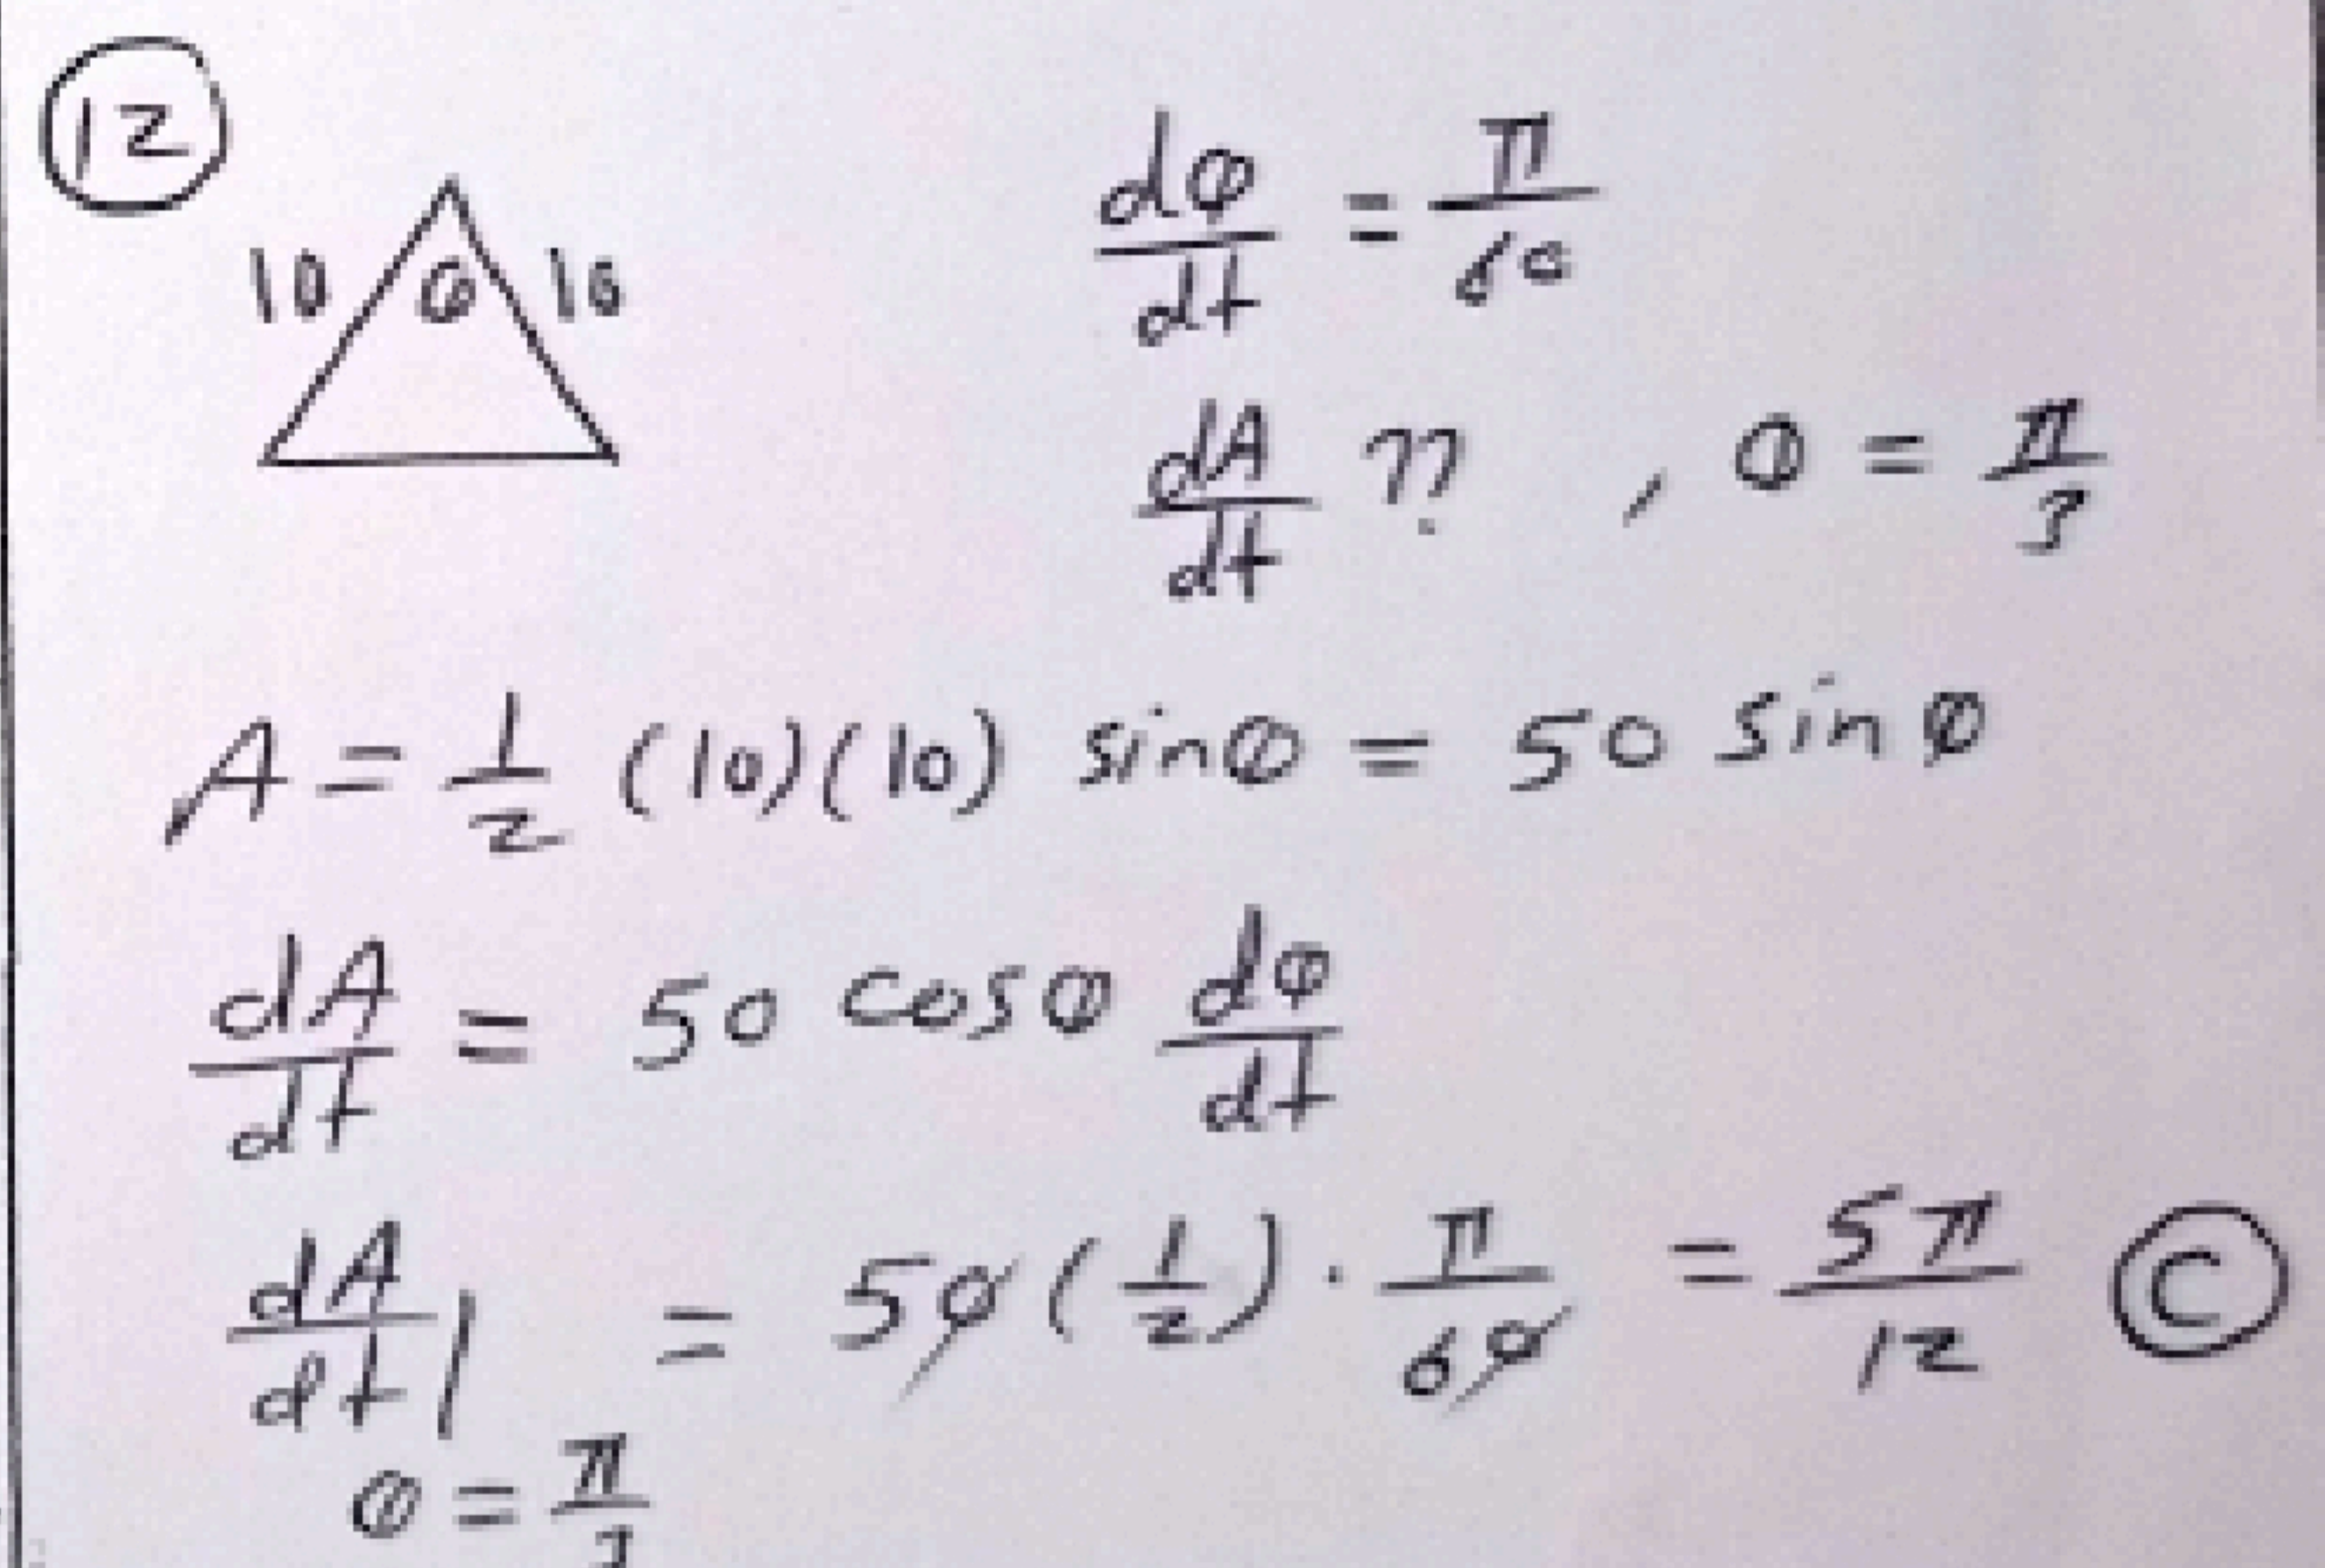 12
10 θ 10
dθ/dt = π/60
dA/dt ?? , θ = π/3
A = 1/2 (10)(10) sinθ = 50 sinθ
dA/dt = 50 cosθ dθ/dt
dA/dt | θ = π/3 = 50(1/2) · π/60 = 5π/12 C